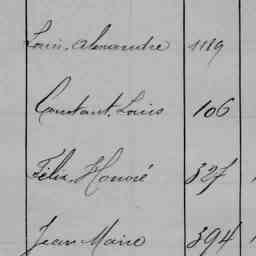 Louis, Alexandre 1189
Constant, Louis 106
Félix, Honoré 327
Jean Marie 394